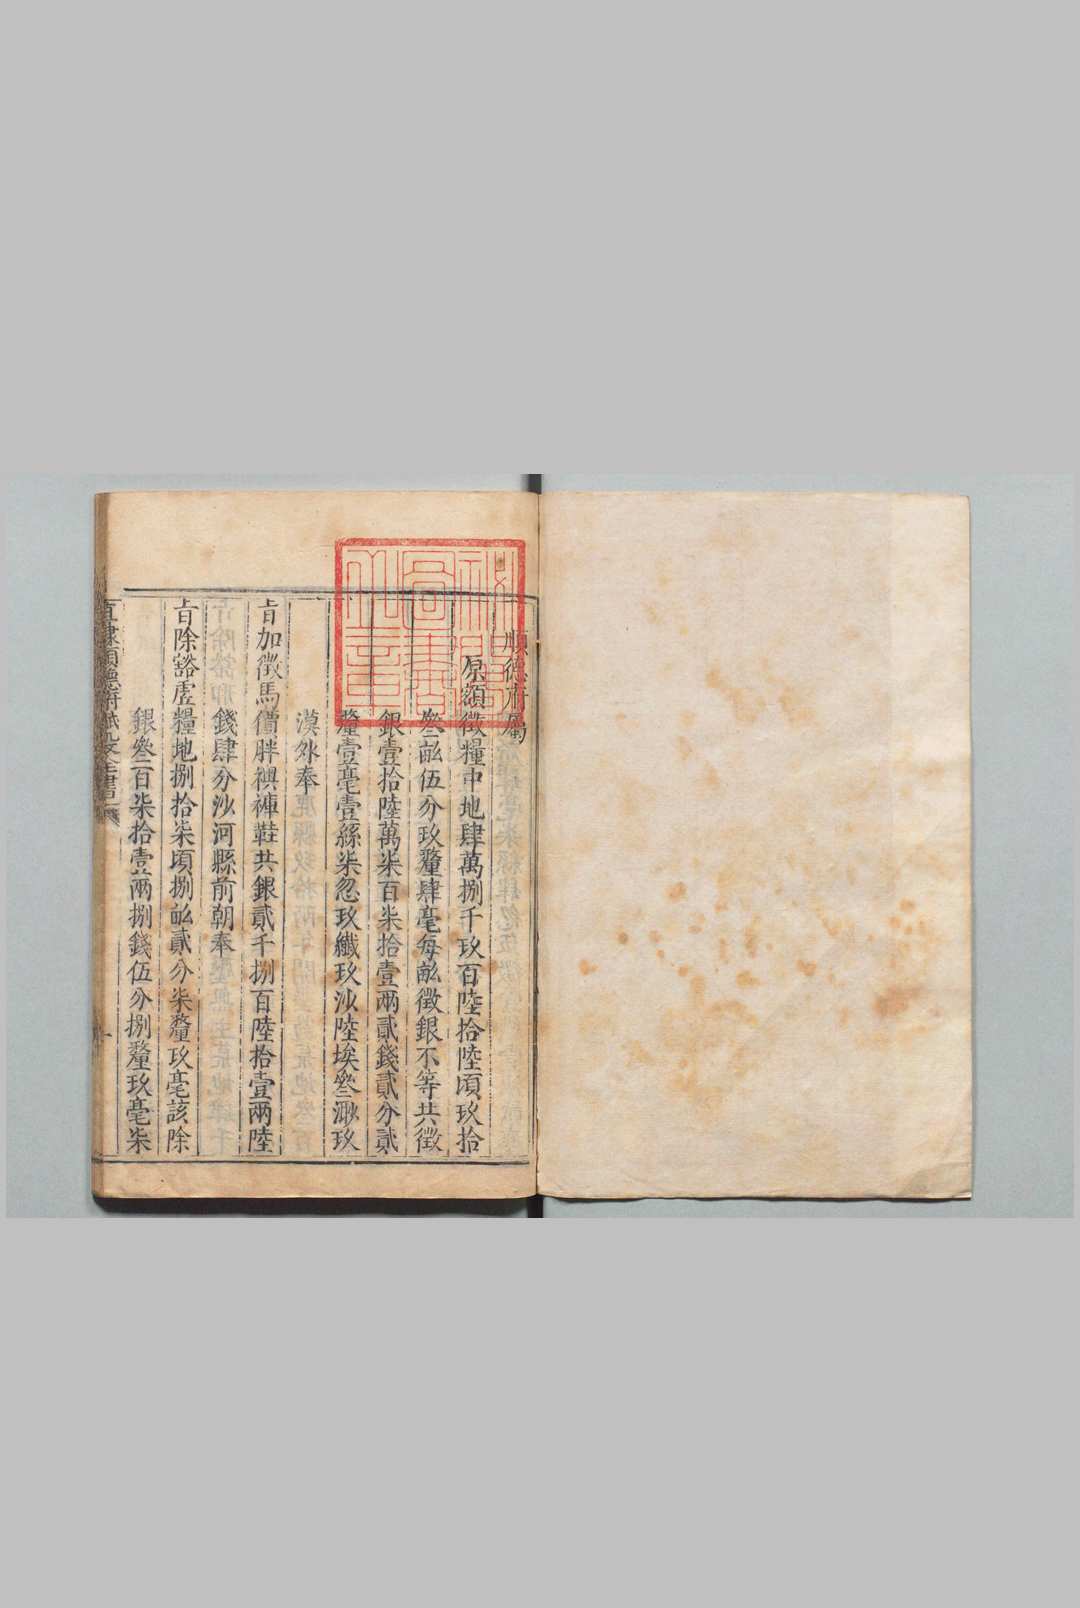 順德府屬
原額徵糧中地肆萬捌千玖百陸拾陸頃玖拾
叄畝伍分玖釐肆毫每畝徵銀不等共徵
銀壹拾陸萬柒百柒拾壹兩貳錢貳分貳
釐壹毫壹絲柒忽玖纖玖沙陸埃叄渺玖
漠外奉
旨加徵馬價胖襖褲鞋共銀貳千捌百陸拾壹兩陸
錢肆分沙河縣前朝奉
旨除豁虛糧地捌拾柒頃捌畝貳分柒釐玖毫該除
銀叄百柒拾壹兩捌錢伍分捌釐玖毫柒
直隸順德府賦役全書
一